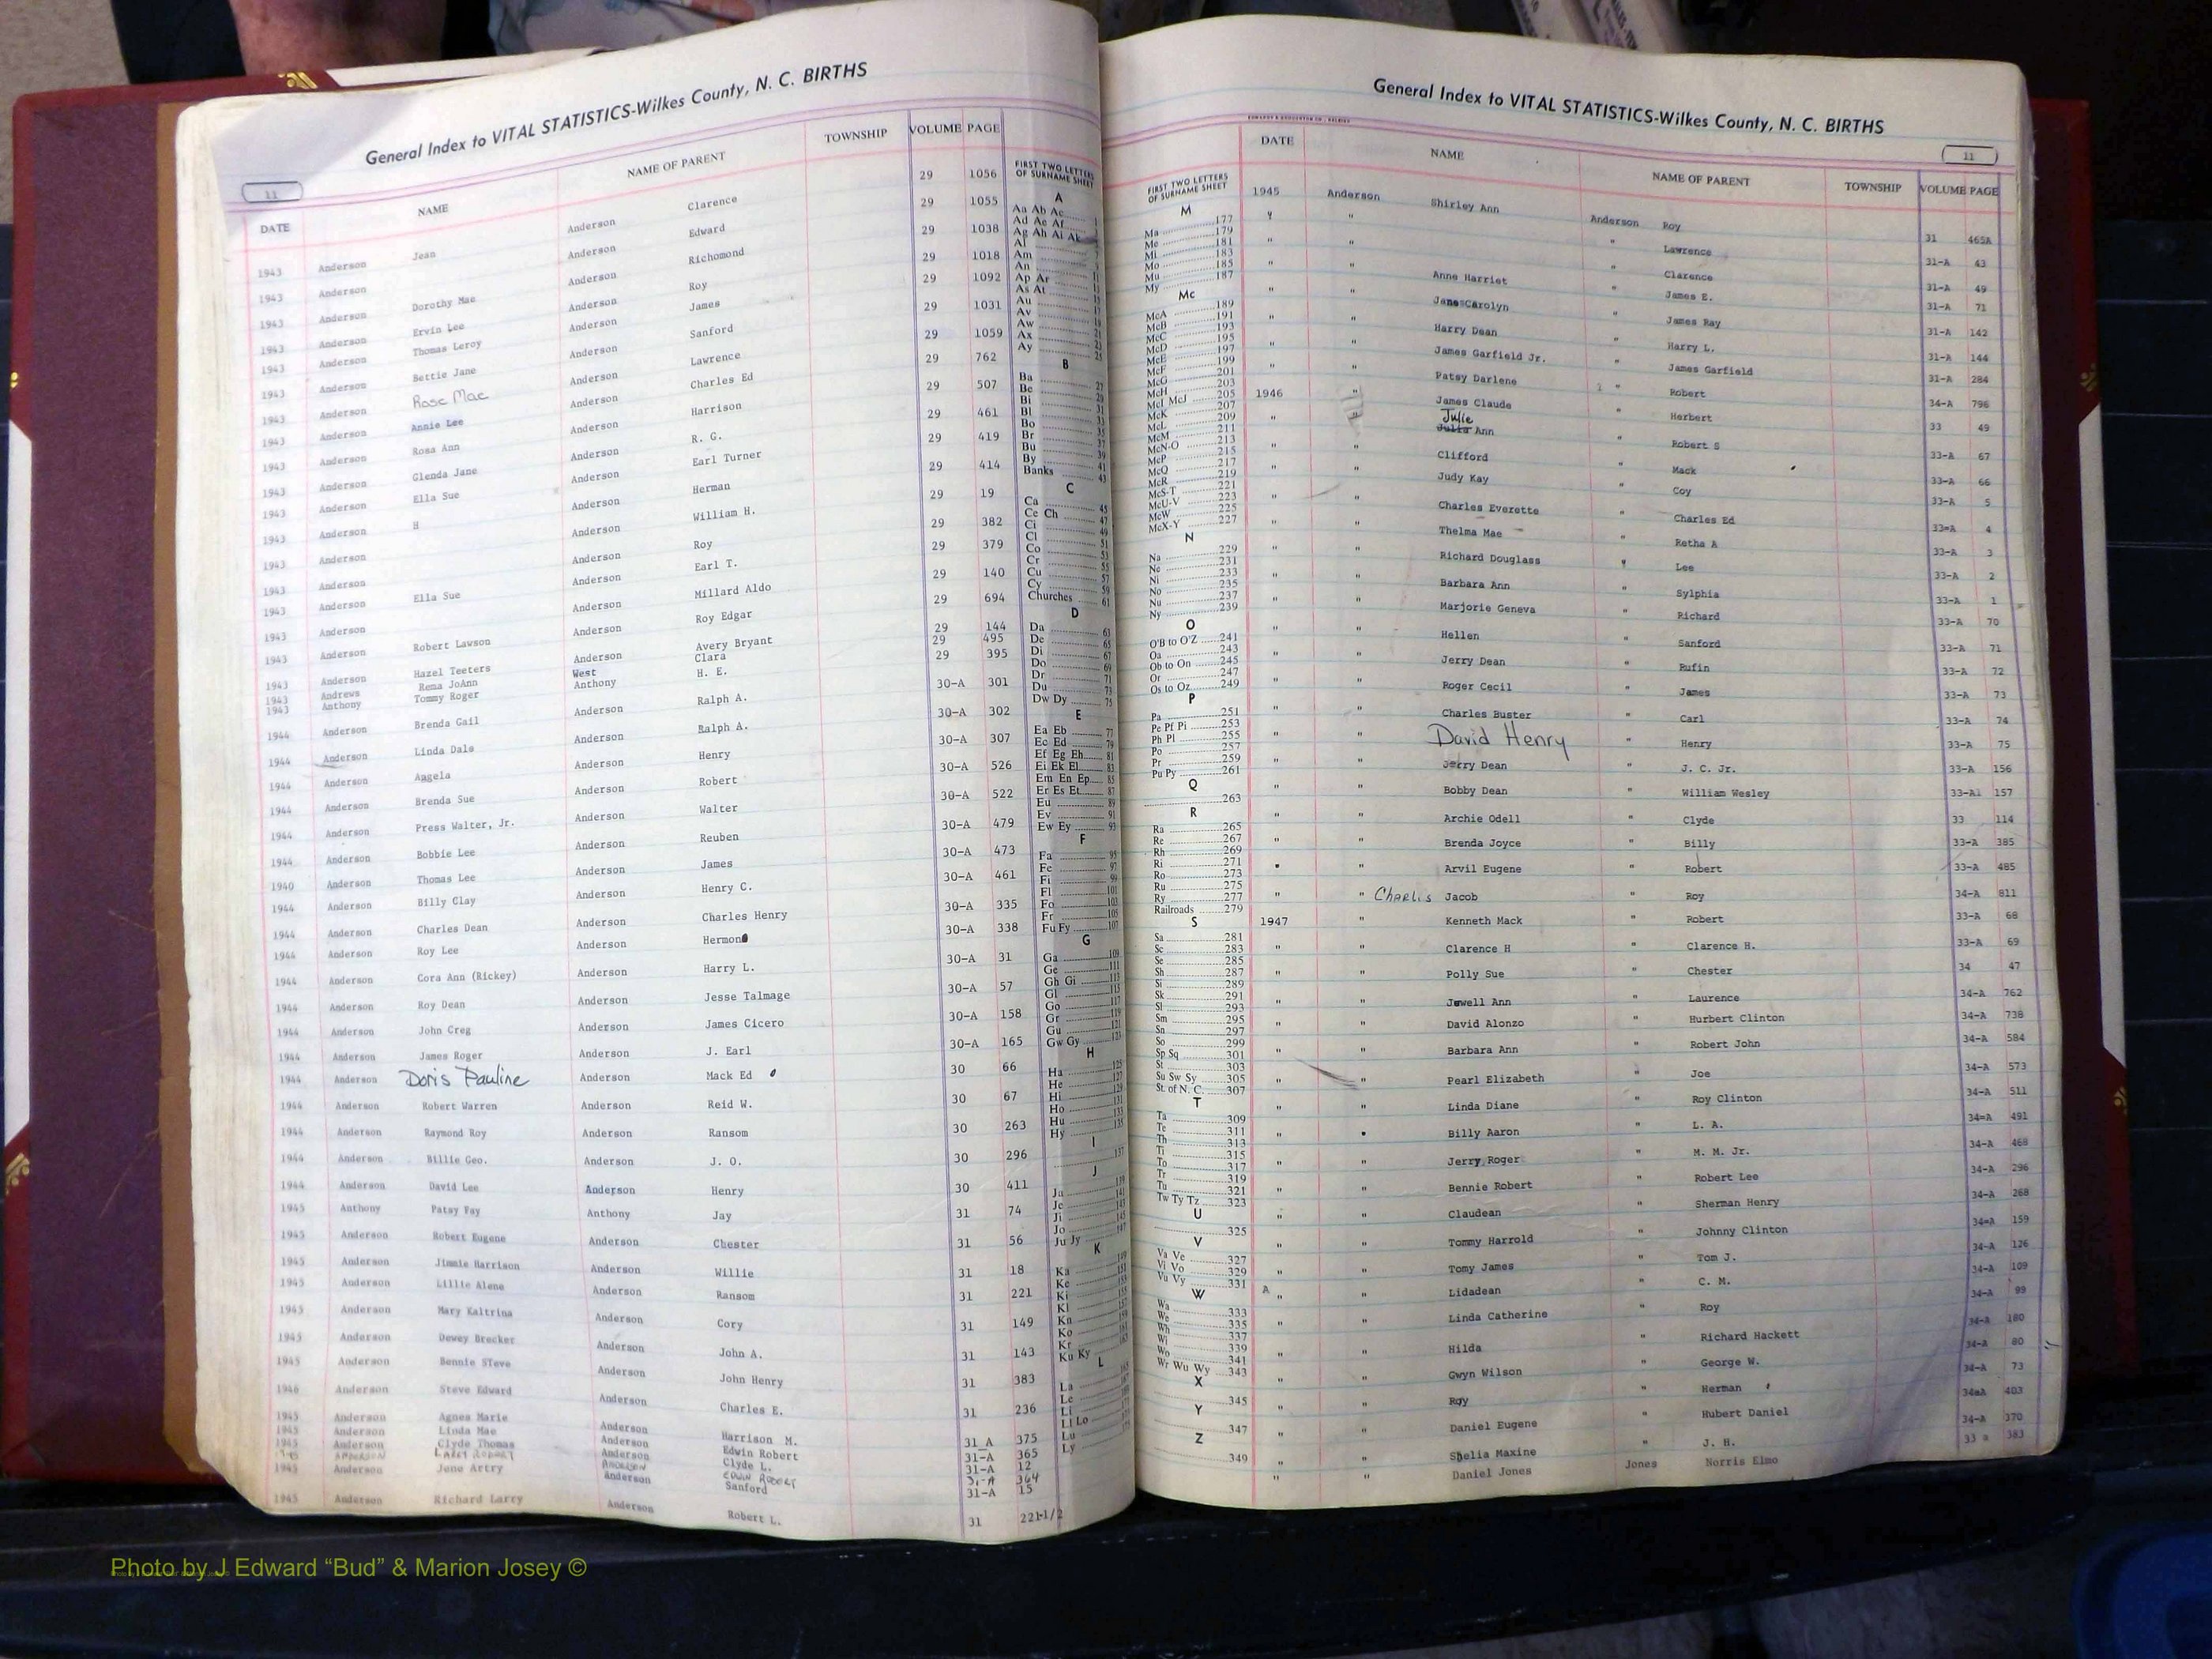 General Index to VITAL STATISTICS-Wilkes County, N. C. BIRTHS
11
DATE NAME NAME OF PARENT TOWNSHIP VOLUME PAGE
1943 Anderson Jean Anderson Clarence 29 1056
1943 Anderson Anderson Edward 29 1055
1943 Anderson Dorothy Mae Anderson Richomond 29 1038
1943 Anderson Ervin Lee Anderson Roy 29 1018
1943 Anderson Thomas Leroy Anderson James 29 1092
1943 Anderson Bettie Jane Anderson Sanford 29 1031
1943 Anderson Rose Mae Anderson Lawrence 29 1059
1943 Anderson Annie Lee Anderson Charles Ed 29 762
1943 Anderson Rosa Ann Anderson Harrison 29 507
1943 Anderson Glenda Jane Anderson R. G. 29 461
1943 Anderson Ella Sue Anderson Earl Turner 29 419
1943 Anderson H Anderson Herman 29 414
1943 Anderson Anderson William H. 29 19
1943 Anderson Anderson Roy 29 382
1943 Anderson Ella Sue Anderson Earl T. 29 379
1943 Anderson Anderson Millard Aldo 29 140
1943 Anderson Robert Lawson Anderson Roy Edgar 29 694
1943 Anderson Hazel Teeters Anderson Avery Bryant 29 144
1943 Andrews Rema JoAnn West Clara 29 495
1943 Anthony Tommy Roger Anthony H. E. 29 395
1944 Anderson Brenda Gail Anderson Ralph A. 30-A 301
1944 Anderson Linda Dale Anderson Ralph A. 30-A 302
1944 Anderson Angela Anderson Henry 30-A 307
1944 Anderson Brenda Sue Anderson Robert 30-A 526
1944 Anderson Press Walter, Jr. Anderson Walter 30-A 522
1944 Anderson Bobbie Lee Anderson Reuben 30-A 479
1940 Anderson Thomas Lee Anderson James 30-A 473
1944 Anderson Billy Clay Anderson Henry C. 30-A 461
1944 Anderson Charles Dean Anderson Charles Henry 30-A 335
1944 Anderson Roy Lee Anderson Hermon 30-A 338
1944 Anderson Cora Ann (Rickey) Anderson Harry L. 30-A 31
1944 Anderson Roy Dean Anderson Jesse Talmage 30-A 57
1944 Anderson John Creg Anderson James Cicero 30-A 158
1944 Anderson James Roger Anderson J. Earl 30-A 165
1944 Anderson Doris Pauline Anderson Mack Ed 30 66
1944 Anderson Robert Warren Anderson Reid W. 30 67
1944 Anderson Raymond Roy Anderson Ransom 30 263
1944 Anderson Billie Geo. Anderson J. O. 30 296
1944 Anderson David Lee Anderson Henry 30 411
1945 Anthony Patsy Fay Anthony Jay 31 74
1945 Anderson Robert Eugene Anderson Chester 31 56
1945 Anderson Jimmie Harrison Anderson Willie 31 18
1945 Anderson Lillie Alene Anderson Ransom 31 221
1945 Anderson Mary Kaltrina Anderson Cory 31 149
1945 Anderson Dewey Brecker Anderson John A. 31 143
1945 Anderson Bennie Steve Anderson John Henry 31 383
1946 Anderson Steve Edward Anderson Charles E. 31 236
1945 Anderson Agnes Marie Anderson Harrison M. 31_A 375
1945 Anderson Linda Mae Anderson Edwin Robert 31-A 365
1945 Anderson Clyde Thomas Anderson Clyde L. 31-A 12
1945 ANDERSON LARRY ROBERT ANDERSON EDWIN ROBERT 31-A 364
1945 Anderson Jene Artry Anderson Sanford 31-A 15
1945 Anderson Richard Larry Anderson Robert L. 31 221-1/2
FIRST TWO LETTERS OF SURNAME SHEET
A
Aa Ab Ac 1
Ad Ae Af
Ag Ah Ai Ak
Al 7
Am
An 11
Ap Ar
As At
Au
Av
Aw
Ax
Ay 25
B
Ba 27
Be 29
Bi 31
Bl 33
Bo 35
Br 37
Bu 39
By 41
Banks 43
C
Ca 45
Ce Ch 47
Ci 49
Cl 51
Co 53
Cr 55
Cu 57
Cy 59
Churches 61
D
Da 63
De 65
Di 67
Do 69
Dr 71
Du 73
Dw Dy 75
E
Ea Eb 77
Ec Ed 79
Ef Eg Eh 81
Ei Ek El 83
Em En Ep 85
Er Es Et 87
Eu 89
Ev 91
Ew Ey 93
F
Fa 95
Fe 97
Fi 99
Fl 101
Fo 103
Fr 105
Fu Fy 107
G
Ga 109
Ge 111
Gh Gi 113
Gl 115
Go 117
Gr 119
Gu 121
Gw Gy 123
H
Ha 125
He 127
Hi 129
Ho 131
Hu 133
Hy 135
I
137
J
Ja 139
Je 141
Ji 143
Jo 145
Ju Jy 147
K
Ka 149
Ke 151
Ki
Kl
Kn
Ko
Kr
Ku Ky
L
La
Le
Li
Ll Lo
Lu
Ly
General Index to VITAL STATISTICS-Wilkes County, N. C. BIRTHS
11
FIRST TWO LETTERS OF SURNAME SHEET
M
Ma 177
Me 179
Mi 181
Mo 183
Mu 185
My 187
Mc
McA 189
McB 191
McC 193
McD 195
McE 197
McF 199
McG 201
McH 203
McI McJ 205
McK 207
McL 209
McM 211
McN-O 213
McP 215
McQ 217
McR 219
McS-T 221
McU-V 223
McW 225
McX-Y 227
N
Na 229
Ne 231
Ni 233
No 235
Nu 237
Ny 239
O
O'B to O'Z 241
Oa 243
Ob to On 245
Or 247
Os to Oz 249
P
Pa 251
Pe Pf Pi 253
Ph Pl 255
Po 257
Pr 259
Pu Py 261
Q
263
R
Ra 265
Re 267
Rh 269
Ri 271
Ro 273
Ru 275
Ry 277
Railroads 279
S
Sa 281
Sc 283
Se 285
Sh 287
Si 289
Sk 291
Sl 293
Sm 295
Sn 297
So 299
Sp Sq 301
St 303
Su Sw Sy 305
St. of N. C. 307
T
Ta 309
Te 311
Th 313
Ti 315
To 317
Tr 319
Tu 321
Tw Ty Tz 323
U
325
V
Va Ve 327
Vi Vo 329
Vu Vy 331
W
Wa 333
We 335
Wh 337
Wi 339
Wo 341
Wr Wu Wy 343
X
345
Y
347
Z
349
DATE NAME NAME OF PARENT TOWNSHIP VOLUME PAGE
1945 Anderson Shirley Ann Anderson Roy 31 465A
" " " Lawrence 31-A 43
" " " Clarence 31-A 49
" " Anne Harriet " James E. 31-A 71
" " Jane Carolyn " James Ray 31-A 142
" " Harry Dean " Harry L. 31-A 144
" " James Garfield Jr. " James Garfield 31-A 284
" " Patsy Darlene " Robert 34-A 796
1946 " James Claude " Herbert 33 49
" " Julie Julia Ann " Robert S 33-A 67
" " Clifford " Mack 33-A 66
" " Judy Kay " Coy 33-A 5
" " Charles Everette " Charles Ed 33=A 4
" " Thelma Mae " Retha A 33-A 3
" " Richard Douglass " Lee 33-A 2
" " Barbara Ann " Sylphia 33-A 1
" " Marjorie Geneva " Richard 33-A 70
" " Hellen " Sanford 33-A 71
" " Jerry Dean " Rufin 33-A 72
" " Roger Cecil " James 33-A 73
" " Charles Buster " Carl 33-A 74
" " David Henry " Henry 33-A 75
" " Jerry Dean " J. C. Jr. 33-A 156
" " Bobby Dean " William Wesley 33-A1 157
" " Archie Odell " Clyde 33 114
" " Brenda Joyce " Billy 33-A 385
" " Arvil Eugene " Robert 33-A 485
" " Charlis Jacob " Roy 34-A 811
1947 " Kenneth Mack " Robert 33-A 68
" " Clarence H " Clarence H. 33-A 69
" " Polly Sue " Chester 34 47
" " Jewell Ann " Laurence 34-A 762
" " David Alonzo " Hurbert Clinton 34-A 738
" " Barbara Ann " Robert John 34-A 584
" " Pearl Elizabeth " Joe 34-A 573
" " Linda Diane " Roy Clinton 34-A 511
" " Billy Aaron " L. A. 34=A 491
" " Jerry Roger " M. M. Jr. 34-A 468
" " Bennie Robert " Robert Lee 34-A 296
" " Claudean " Sherman Henry 34-A 268
" " Tommy Harrold " Johnny Clinton 34=A 159
" " Tomy James " Tom J. 34-A 126
A " " Lidadean " C. M. 34-A 109
" " Linda Catherine " Roy 34-A 89
" " Hilda " Richard Hackett 34-A 180
" " Gwyn Wilson " George W. 34-A 80
" " Roy " Herman 34-A 73
" " Daniel Eugene " Hubert Daniel 34aA 403
" " Shelia Maxine " J. H. 34-A 370
" " Daniel Jones Jones Norris Elmo 33 a 383
Photo by J Edward “Bud” & Marion Josey ©